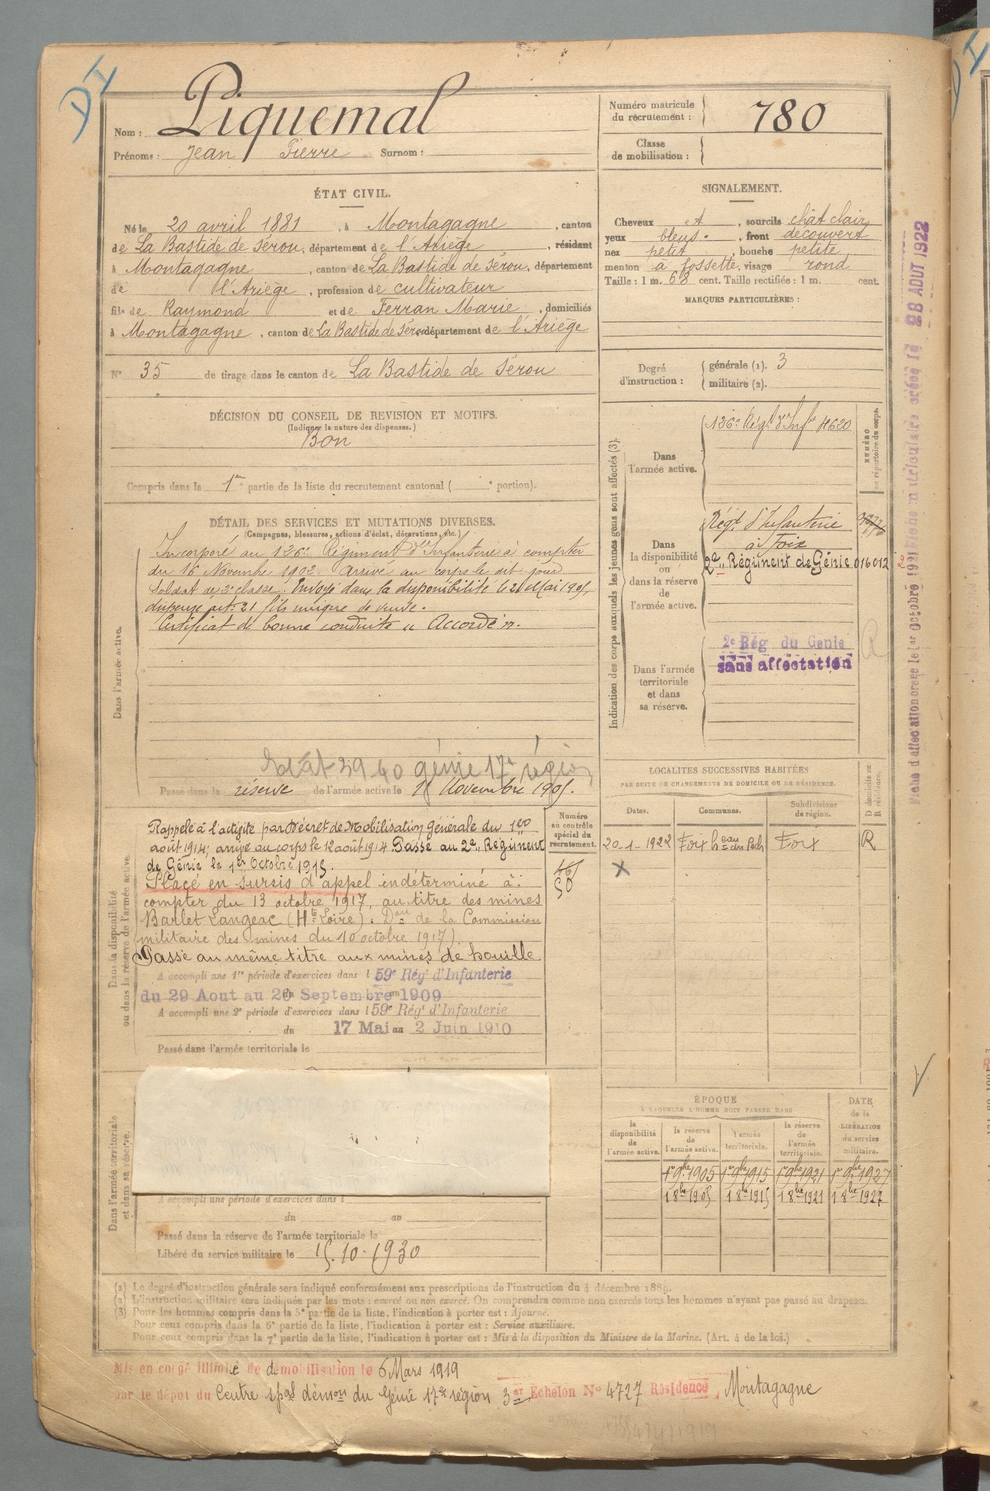 DI
Nom : Piquemal
Prénoms : Jean Pierre Surnom :
Numéro matricule du recrutement : 780
Classe de mobilisation :
ÉTAT CIVIL.
Né le 20 avril 1881, à Montagagne, canton
de La Bastide de Sérou, département de l'Ariège, résidant
à Montagagne, canton de La Bastide de Sérou, département
de l'Ariège, profession de cultivateur
fils de Raymond et de Ferran Marie, domiciliés
à Montagagne, canton de La Bastide de Sérou département de l'Ariège
N° 35 de tirage dans le canton de La Bastide de Sérou
SIGNALEMENT.
Cheveux et, sourcils chât clair
yeux bleus, front découvert
nez petit, bouche petite
menton à fossette, visage rond
Taille : 1 m. 68 cent. Taille rectifiée : 1 m. cent.
MARQUES PARTICULIÈRES :
Degré d'instruction : générale (1). 3
militaire (2).
DÉCISION DU CONSEIL DE REVISION ET MOTIFS.
(Indiquer la nature des dispenses.)
Bon
Compris dans la 1re partie de la liste du recrutement cantonal ( portion).
DÉTAIL DES SERVICES ET MUTATIONS DIVERSES.
(Campagnes, blessures, actions d'éclat, décorations, etc.)
Dans l'armée active.
Incorporé au 126e Régiment d'Infanterie à compter
du 16 Novembre 1902. Arrivé au corps le dit jour
Soldat de 2e classe. Envoyé dans la disponibilité le 21 Mai 1905
dispensé art. 21 fils unique de veuve.
Certificat de bonne conduite "Accordé".
39 40 génie 17e région
Passé dans la réserve de l'armée active le 1er Novembre 1905.
Indication des corps auxquels les jeunes gens sont affectés (3).
NUMÉRO au répertoire du corps.
Dans l'armée active.
126e Régt d'Infie 4620
Dans la disponibilité ou dans la réserve de l'armée active.
Régt d'Infanterie
à Foix
2e Régiment de Génie 016012
Dans l'armée territoriale et dans sa réserve.
2e Rég du Genie
sans affectation
R
28 AOUT 1922
Dans la disponibilité ou dans la réserve de l'armée active.
Numéro au contrôle spécial du recrutement.
Rappelé à l'activité par Décret de Mobilisation Générale du 1er
août 1914, arrivé au corps le 12 août 1914 Passé au 2e Régiment
de Génie le 1er Octobre 1915.
Placé en sursis d'appel indéterminé à
compter du 13 octobre 1917, au titre des mines
Barlet Langeac (Hte Loire). Don de la Commission
militaire des mines du 10 octobre 1917).
Passé au même titre aux mines de houille
A accompli une 1re période d'exercices dans l 59e Régt d'Infanterie
du 29 Aout au 20 Septembre 1909
A accompli une 2e période d'exercices dans l 59e Régt d'Infanterie
du 17 Mai au 2 Juin 1910
Passé dans l'armée territoriale le
LOCALITÉS SUCCESSIVES HABITÉES
PAR SUITE DE CHANGEMENTS DE DOMICILE OU DE RÉSIDENCE.
Dates. Communes. Subdivisions de région. D domicile ou R résidence.
20-1-1922 Foix Foix R
X
ÉPOQUE
À LAQUELLE L'HOMME DOIT PASSER DANS
DATE de la LIBÉRATION du service militaire.
la disponibilité de l'armée active. la réserve de l'armée active. l'armée territoriale. la réserve de l'armée territoriale.
1er 9bre 1905 1er 9bre 1915 1er 9bre 1921 1er 9bre 1927
1 8bre 1905 1 8bre 1915 1 8bre 1921 1 8bre 1927
Dans l'armée territoriale et dans sa réserve.
A accompli une période d'exercices dans l
du au
Passé dans la réserve de l'armée territoriale le
Libéré du service militaire le 15.10.1930
(1) Le degré d'instruction générale sera indiqué conformément aux prescriptions de l'instruction du 4 décembre 1889.
(2) L'instruction militaire sera indiquée par les mots : exercé ou non exercé. On comprendra comme non exercés tous les hommes n'ayant pas passé au drapeau.
(3) Pour les hommes compris dans la 5e partie de la liste, l'indication à porter est : Ajourné.
Pour ceux compris dans la 6e partie de la liste, l'indication à porter est : Service auxiliaire.
Pour ceux compris dans la 7e partie de la liste, l'indication à porter est : Mis à la disposition du Ministre de la Marine. (Art. 4 de la loi.)
Mis en congé illimité de démobilisation le 6 Mars 1919
par le dépôt du Centre spal démon du Génie 17e région 3e Echelon N° 4727 Résidence Montagagne